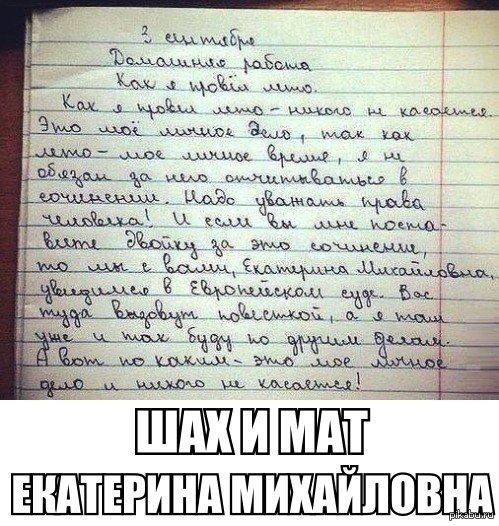 3 сентября
Домашняя работа
Как я провёл лето.
Как я провел лето – никого не касается.
Это моё личное дело, так как
лето – мое личное время, я не
обязан за него отчитываться в
сочинении. Надо уважать права
человека! И если вы мне поста-
вите двойку за это сочинение,
то мы с вами, Екатерина Михайловна,
увидимся в Европейском суде. Вас
туда вызовут повесткой, а я там
уже и так буду по другим делам.
А вот по каким – это мое личное
дело и никого не касается!
ШАХ И МАТ
ЕКАТЕРИНА МИХАЙЛОВНА
pikabu.ru